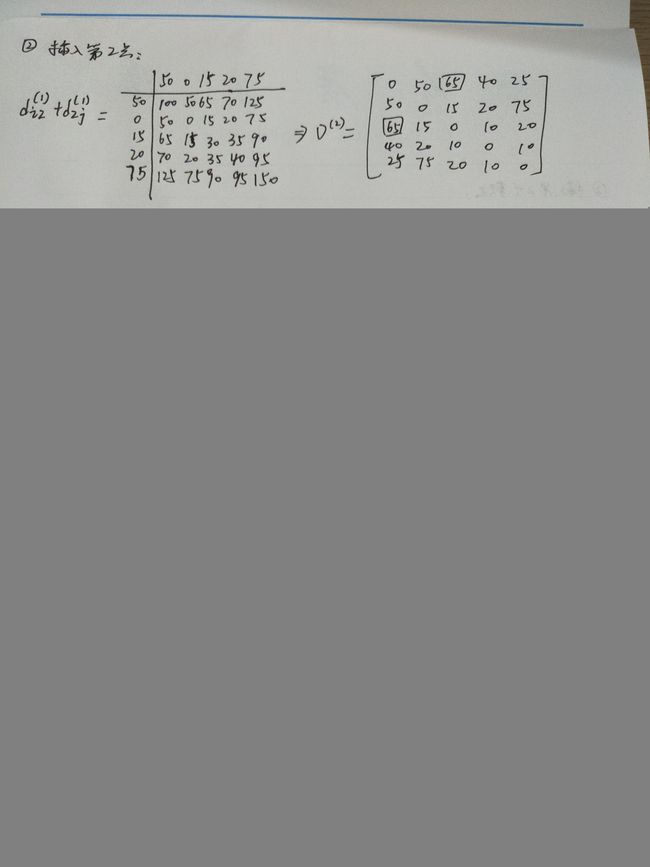 ② 插入第2点:
50 0 15 20 75
d_{i2}^{(1)} + d_{2j}^{(1)} =
50 100 50 65 70 125
0 50 0 15 20 75
15 65 15 30 35 90
20 70 20 35 40 95
75 125 75 90 95 150
⇒ D^{(2)} =
0 50 65 40 25
50 0 15 20 75
65 15 0 10 20
40 20 10 0 10
25 75 20 10 0